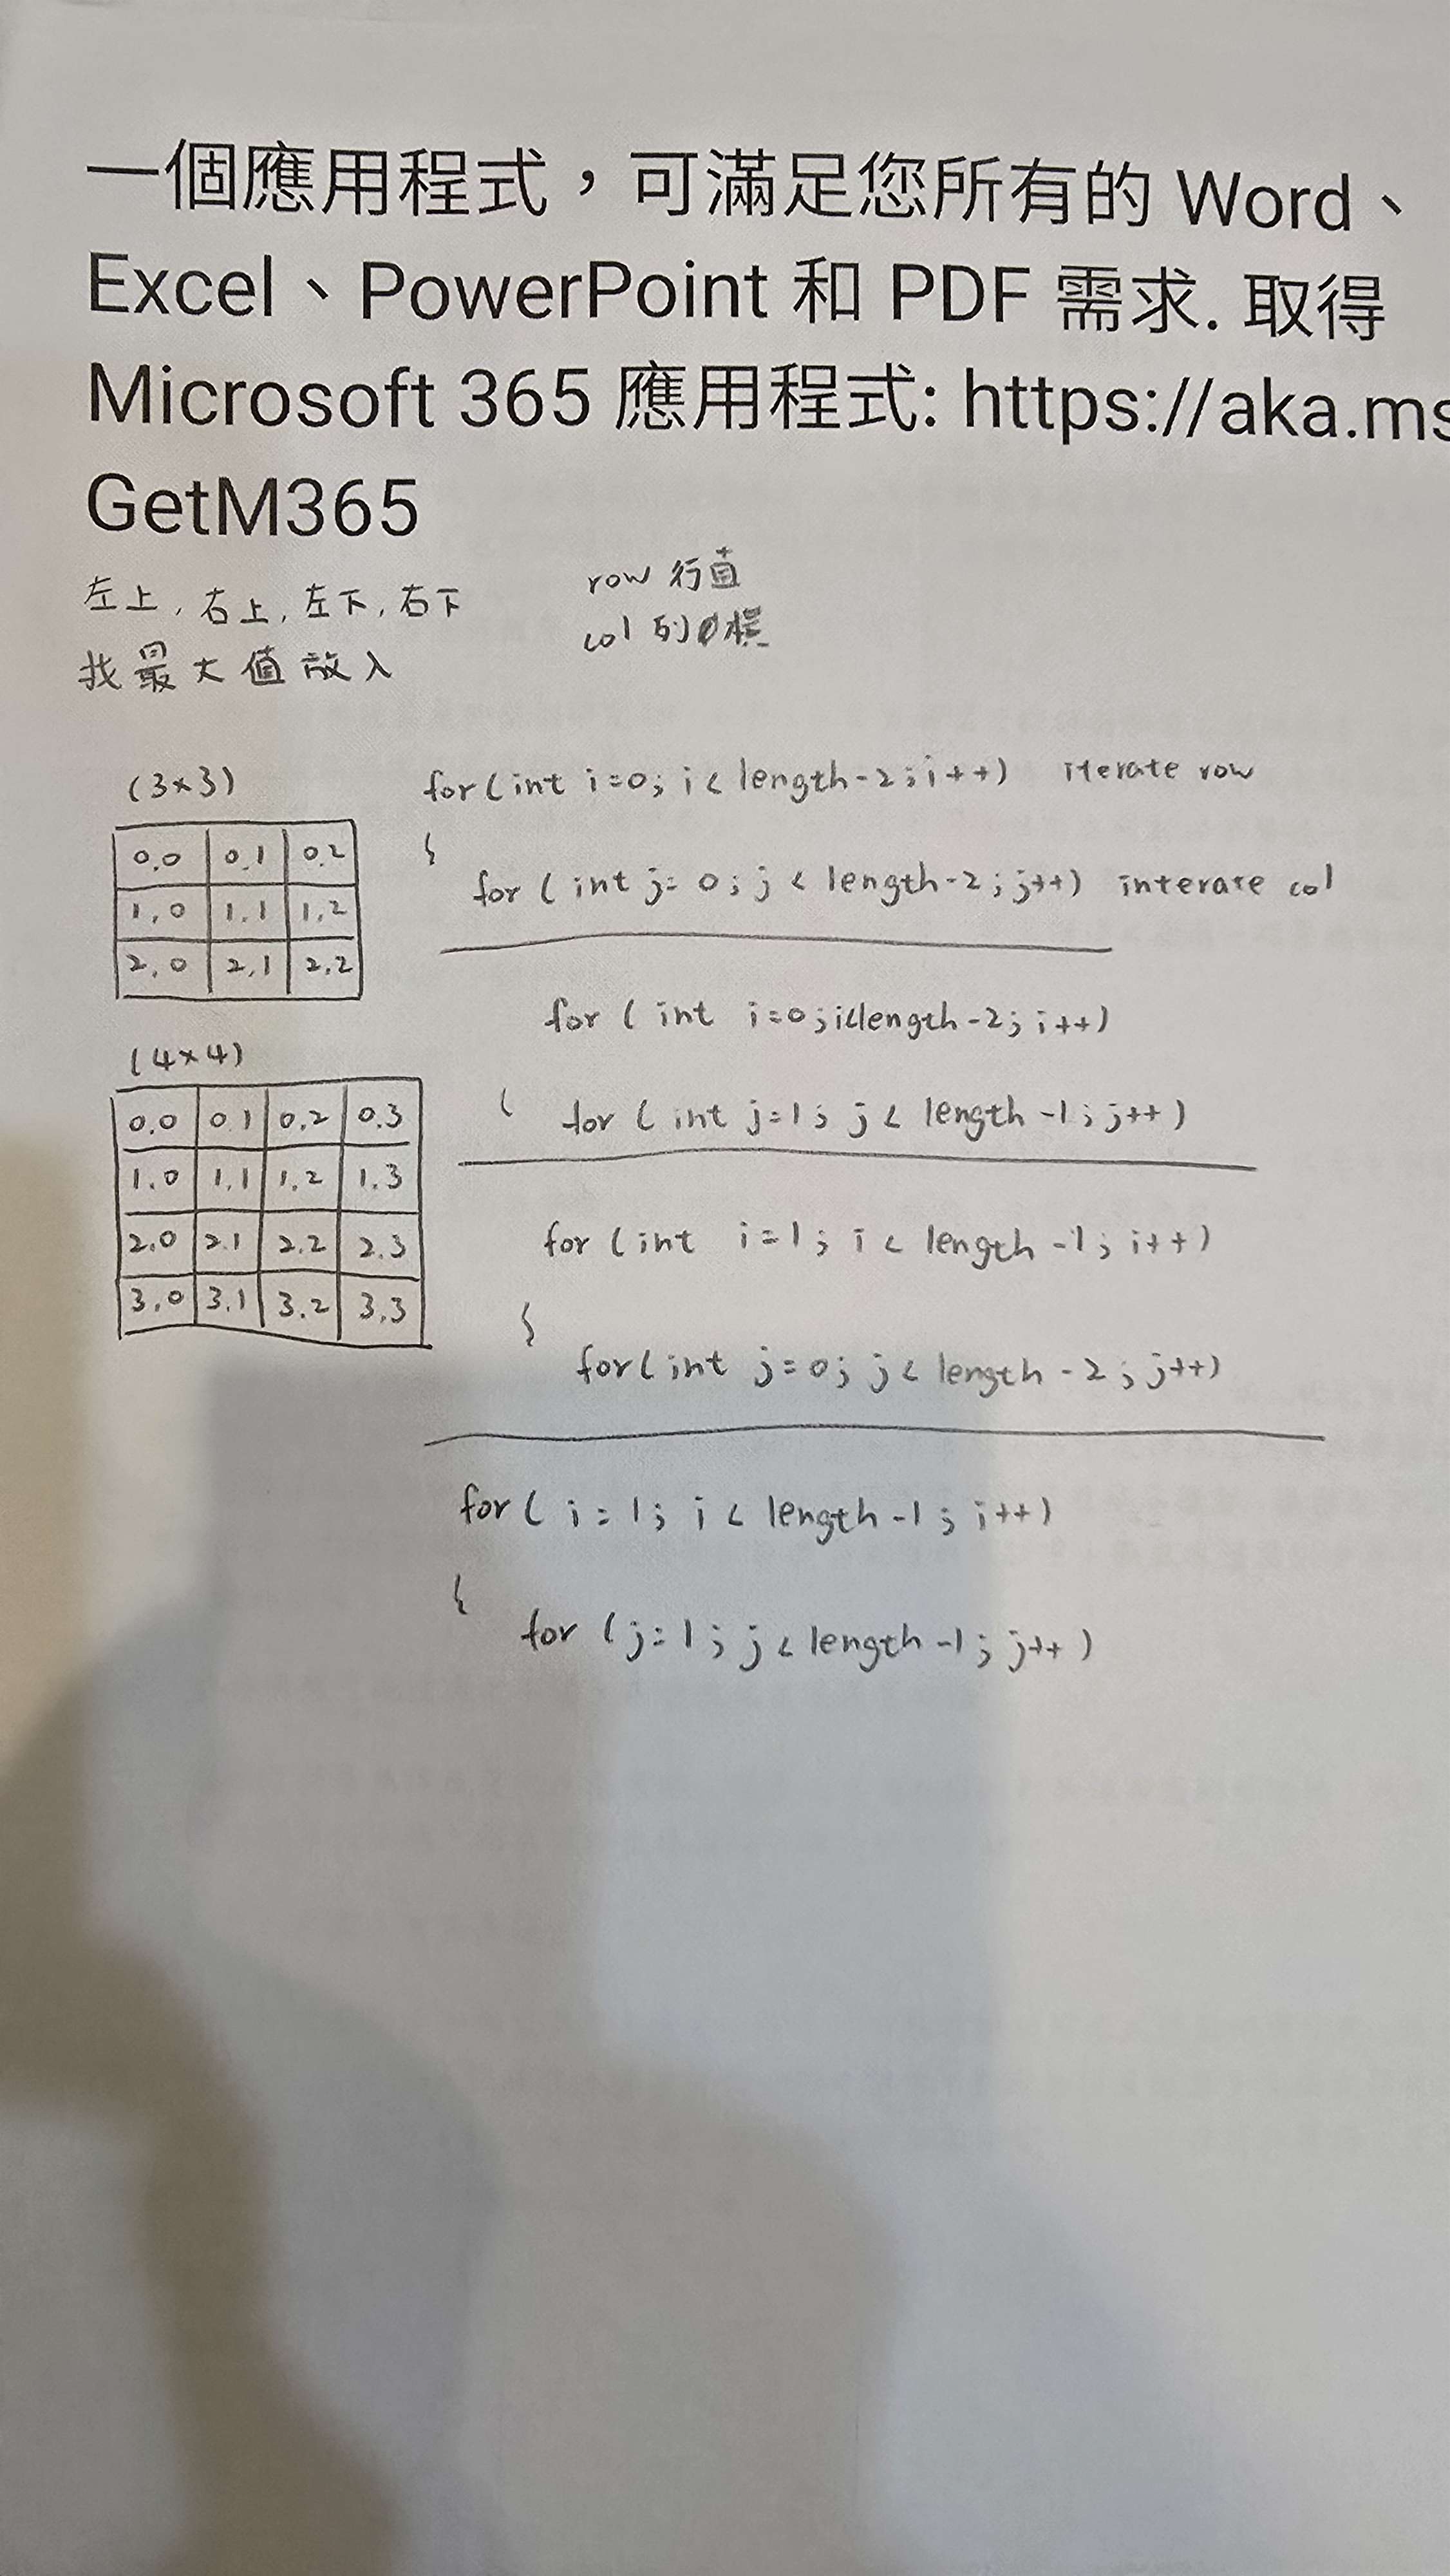 一個應用程式，可滿足您所有的 Word、
Excel、PowerPoint 和 PDF 需求. 取得
Microsoft 365 應用程式: https://aka.ms
GetM365
左上, 右上, 左下, 右下
找最大值放入
row 行直
col 列橫
(3×3)
0,0 0,1 0,2
1,0 1,1 1,2
2,0 2,1 2,2
(4×4)
0,0 0,1 0,2 0,3
1,0 1,1 1,2 1,3
2,0 2,1 2,2 2,3
3,0 3,1 3,2 3,3
for(int i=0; i< length-2; i++) iterate row
{
for (int j= 0; j < length-2; j++) interate col
for ( int i=0; i<length-2; i++)
( for ( int j=1; j < length -1; j++ )
for (int i=1; i < length -1; i++)
{
for(int j=0; j < length - 2; j++)
for( i=1; i < length -1; i++)
{
for (j=1; j < length -1; j++ )